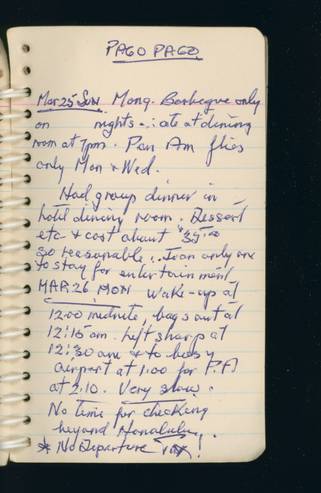 PAGO PAGO
Mar 25 SUN Mong. Barbeque only
on nights ∴ ate at dining
room at 7pm. Pan Am flies
only Mon & Wed.
Had group dinner in
hotel dining room. Dessert
etc & cost about
so reasonable. Joan only one
to stay for entertainment
MAR. 26 MON Wake-up at
12:00 midnite, bags out at
12:15 am. Left sharp at
12:30 am to busy
airport at 1:00 for
at 2:10. Very slow.
No time for checking
beyond Honolulu!
* No Departure TAX!